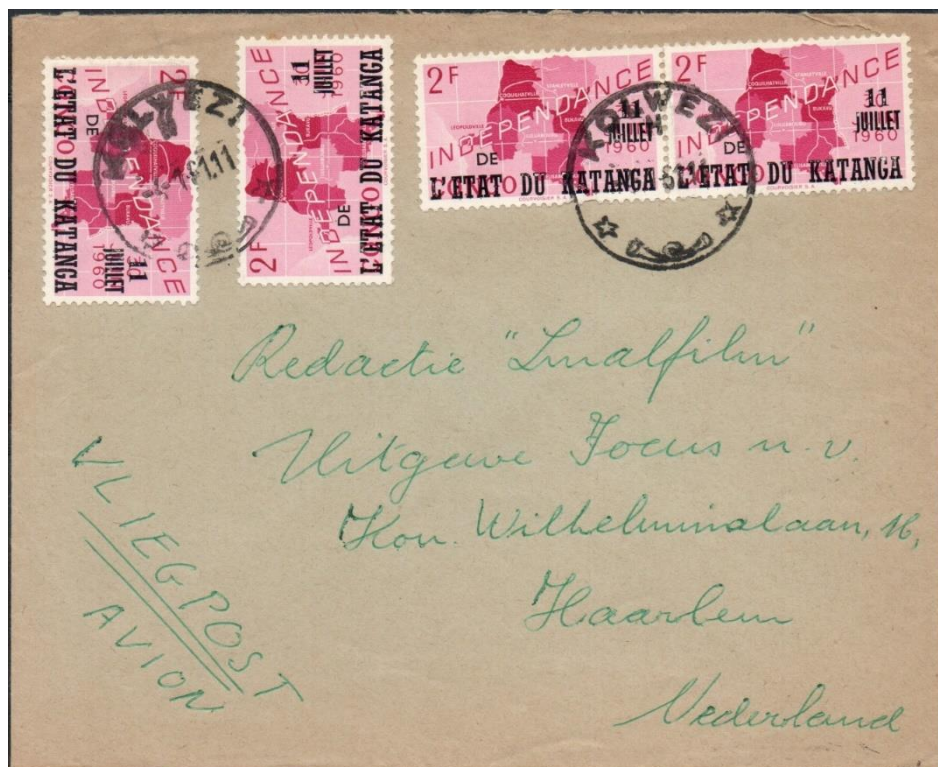 2F
INDEPENDANCE
11
JUILLET
1960
DE
L'ETAT DU KATANGA
KOLWEZI
2F
INDEPENDANCE
11
JUILLET
1960
DE
L'ETAT DU KATANGA
2F
INDEPENDANCE
11
JUILLET
1960
DE
L'ETAT DU KATANGA
2F
INDEPENDANCE
11
JUILLET
1960
DE
L'ETAT DU KATANGA
KOLWEZI
Redactie "Smalfilm"
Uitgave Focus n.v.
Kon. Wilhelminalaan, 16,
Haarlem
Nederland
VLIEGPOST
AVION